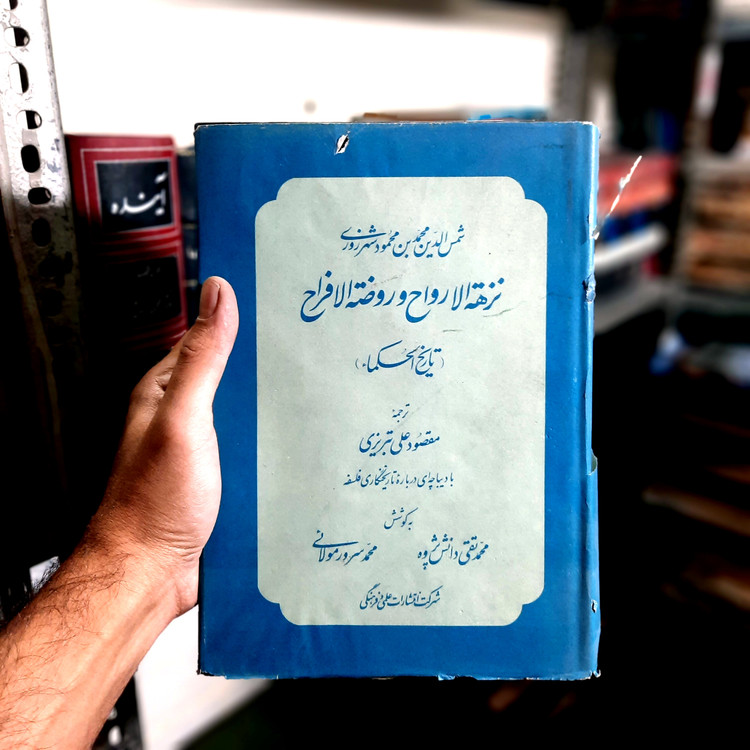 شمس الدین محمد بن محمود شهرزوری
نزهة الارواح و روضة الافراح
(تاریخ الحکماء)
ترجمهٔ
مقصود علی تبریزی
با دیباچه‌ای دربارهٔ تاریخنگاری فلسفه
به کوشش
محمد تقی دانش پژوه محمد سرور مولائی
شرکت انتشارات علمی و فرهنگی
آینده